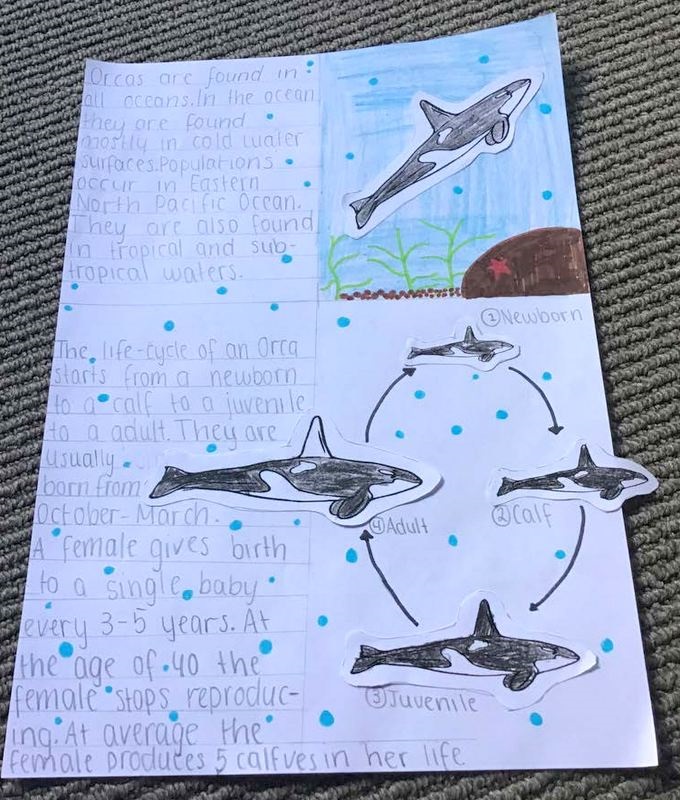 Orcas are found in
all oceans. In the ocean
they are found
mostly in cold water
surfaces. Populations
occur in Eastern
North Pacific Ocean.
They are also found
in tropical and sub-
tropical waters.
The life-cycle of an Orca
starts from a newborn
to a calf to a juvenile
to a adult. They are
usually
born from
October-March.
A female gives birth
to a single baby
every 3-5 years. At
the age of 40 the
female stops reproduc-
ing. At average the
female produces 5 calfves in her life.
① Newborn
② Calf
③ Juvenile
④ Adult